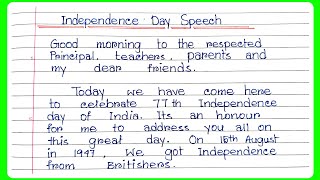 Independence Day Speech
Good morning to the respected
Principal, teachers, parents and
my dear friends.
Today we have come here
to celebrate 77th Independence
day of India. Its an honour
for me to address you all on
this great day. On 15th August
in 1947, We got Independence
from Britishers.